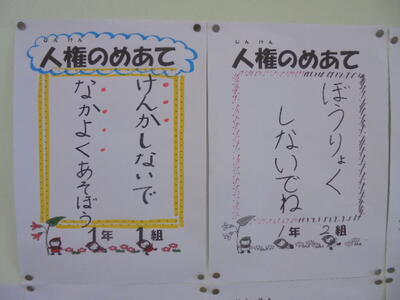 じんけん
人権のめあて
けんかしないで
なかよくあそぼう
1年 1組
じんけん
人権のめあて
ぼうりょく
しないでね
1年 2組